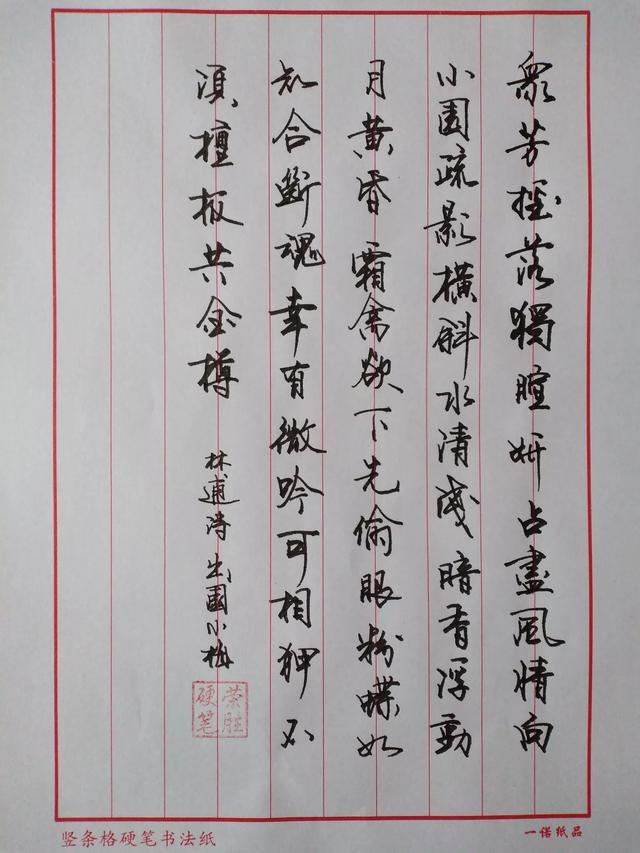 眾芳搖落獨暄妍占盡風情向
小園疏影橫斜水清淺暗香浮動
月黃昏霜禽欲下先偷眼粉蝶如
知合斷魂幸有微吟可相狎不
須檀板共金樽
林逋詩山園小梅
荣胜
硬笔
竖条格硬笔书法纸
一诺纸品